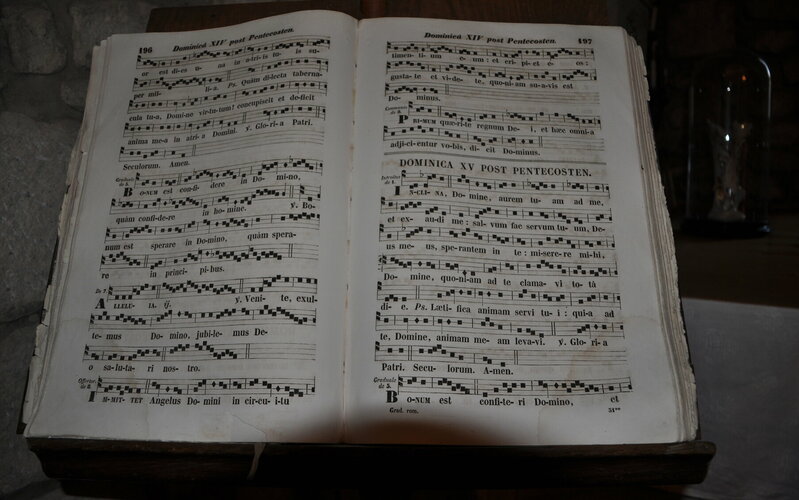 496
Dominicâ XIV post Pentecosten.
or est di-es u- na in a-tri-is tu-is su-
per mil- li-a. Ps. Quàm di-lecta taberna-
cula tu-a, Domi-ne vir-tutum! concupiscit et deficit
anima me-a in atri-a Domini. ℣. Glo-ri-a Patri.
Seculorum. Amen.
Graduale
de 5.
BO-NUM est con-fi- dere in Do- mi-no,
quàm confi-de-re in ho-mine. ℣. Bo-
num est sperare in Do-mino, quàm spera-
re in princi- pi-bus.
De 7.
ALLELU- IA. ij. ℣. Veni- te, exul-
te- mus Do- mino, jubi-le- mus De-
o sa-lu-ta- ri nos-tro.
Offertor.
IM-MIT- TET Angelus Do-mini in cir-cu-i-tu
Dominica XIV post Pentecosten. 497
timen-ti-um e- um: et eri-pi-et e- os:
gusta-te et vi-de- te, quo-ni-am su-a-vis est
Do- minus.
PRI-MUM quæ-ri-te regnum De- i, et hæc omni-a
adji-ci-entur vo-bis, di-cit Do-minus.
DOMINICA XV POST PENTECOSTEN.
Introitus
de 1.
IN-CLI- NA, Do-mine, aurem tu- am ad me,
et ex- au-di me: sal-vum fac servum tu-um, De-
us me- us, spe-rantem in te: mi-sere-re mi-hi,
Do- mine, quo-ni-am ad te clama- vi to-tâ
di- e. Ps. Læti- fica animam servi tu- i: qui-a ad
te, Domine, animam me- am leva-vi. ℣. Glo-ri-a
Patri. Secu- lorum. A-men.
Graduale
de 5.
BO-NUM est confi-te-ri Do-mino, et
Grad. rom.